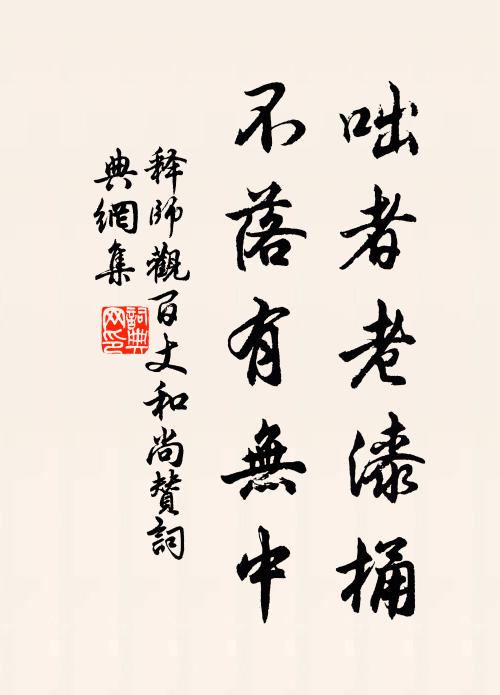 咄者老漆桶
不落有無中
释師觀百丈和尚贊詞
典網集
詞典網印